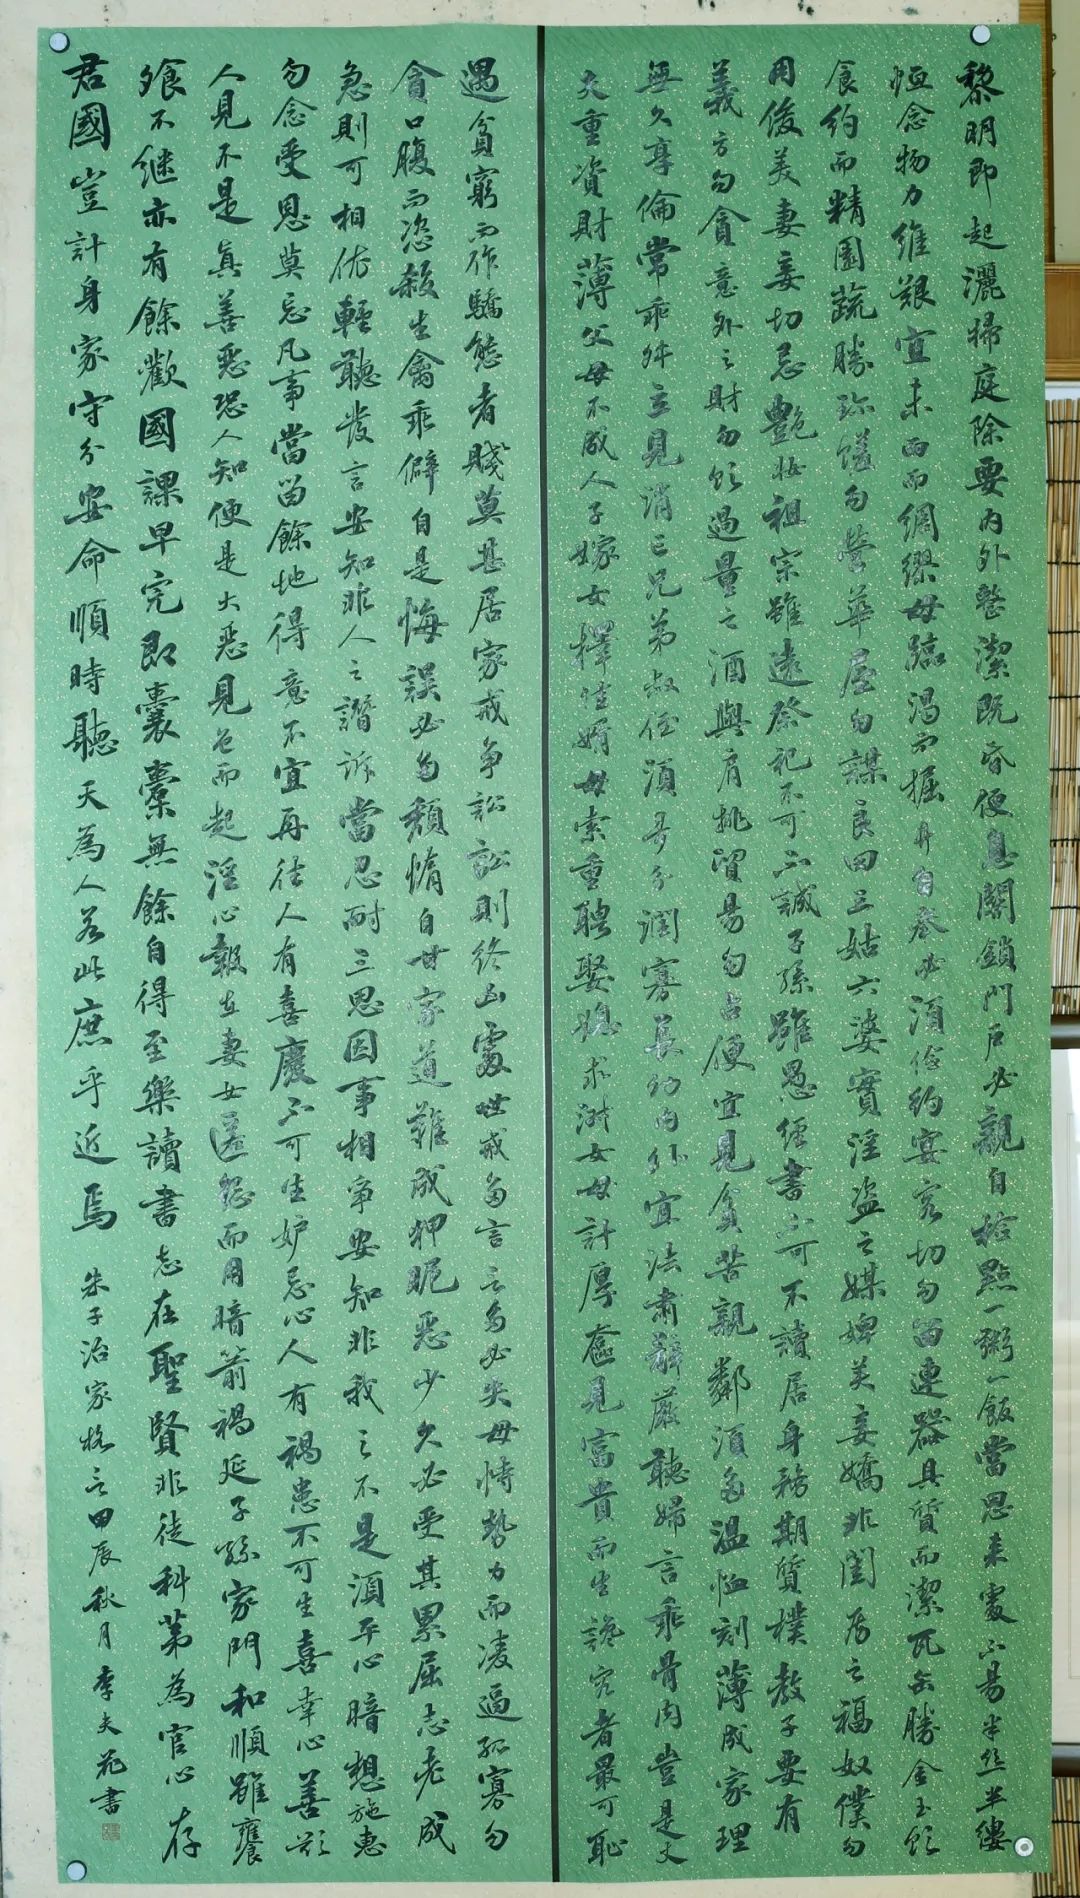 黎明即起灑掃庭除要内外整潔既昏便息關鎖門户必親自檢點一粥一飯當思来處不易半絲半縷
恒念物力維艱宜未雨而綢繆毋臨渴而掘井自奉必須儉約宴客切勿留連器具質而潔瓦缶勝金玉飲
食約而精園蔬勝珍饈勿營華屋勿謀良田三姑六婆實淫盗之媒婢美妾嬌非閨房之福奴僕勿
用俊美妻妾切忌艷妝祖宗雖遠祭祀不可不誠子孫雖愚經書不可不讀居身務期質樸教子要有
義方勿貪意外之財勿飲過量之酒與肩挑貿易勿占便宜見貧苦親鄰須多温恤刻薄成家理
無久享倫常乖舛立見消亡兄弟叔侄須多分潤寡長幼内外宜法肅辭嚴聽婦言乖骨肉豈是丈
夫重資財薄父母不成人子嫁女擇佳婿毋索重聘娶媳求淑女毋計厚奩見富貴而生讒容者最可恥
遇貧窮而作驕態者賤莫甚居家戒争訟訟則終凶處世戒多言言多必失毋恃勢力而凌逼孤寡勿
貪口腹而恣殺生禽乖僻自是悔誤必多頹惰自甘家道難成狎昵惡少久必受其累屈志老成
急則可相依輕聽發言安知非人之譖訴當忍耐三思因事相争安知非我之不是須平心暗想施惠
勿念受恩莫忘凡事當留餘地得意不宜再往人有喜慶不可生妒忌心人有禍患不可生喜幸心善欲
人見不是真善惡恐人知便是大惡見色而起淫心報在妻女匿怨而用暗箭禍延子孫家門和順雖饔
飧不继亦有餘歡國課早完即囊橐無餘自得至樂讀書志在聖賢非徒科第為官心存
君國豈計身家守分安命順時聽天為人若此庶乎近焉
朱子治家格言甲辰秋月李夫花書